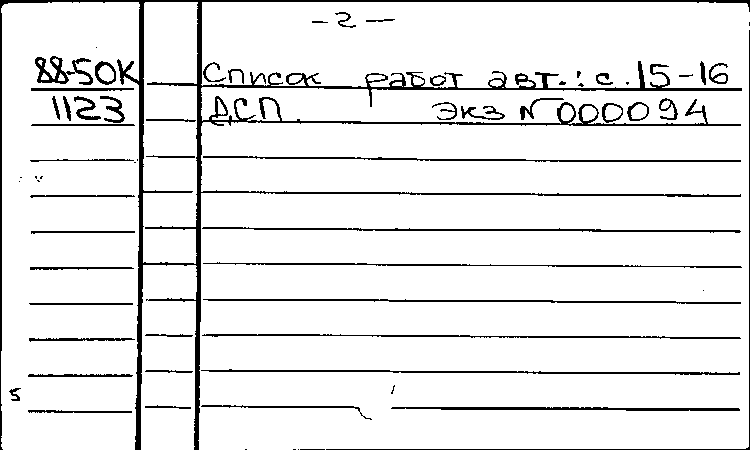 -2-
88-50К Список работ авт.: с. 15-16
1123 ДСП. Экз № 000094
5